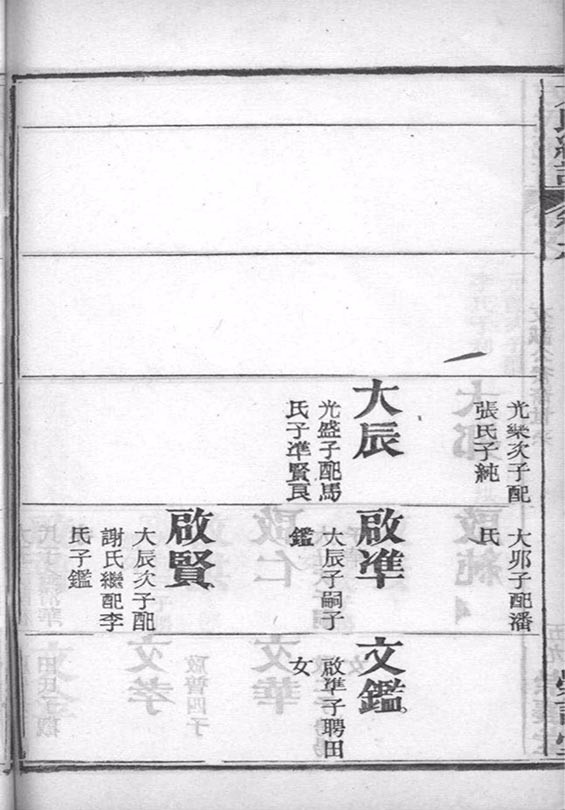 光榮次子配
張氏子純
大辰
光盛子配馬
氏子準賢良
大卯子配潘
氏
啟準
大辰子嗣子
鑑
啟賢
大辰次子配
謝氏繼配李
氏子鑑
文鑑
啟準子聘田
女